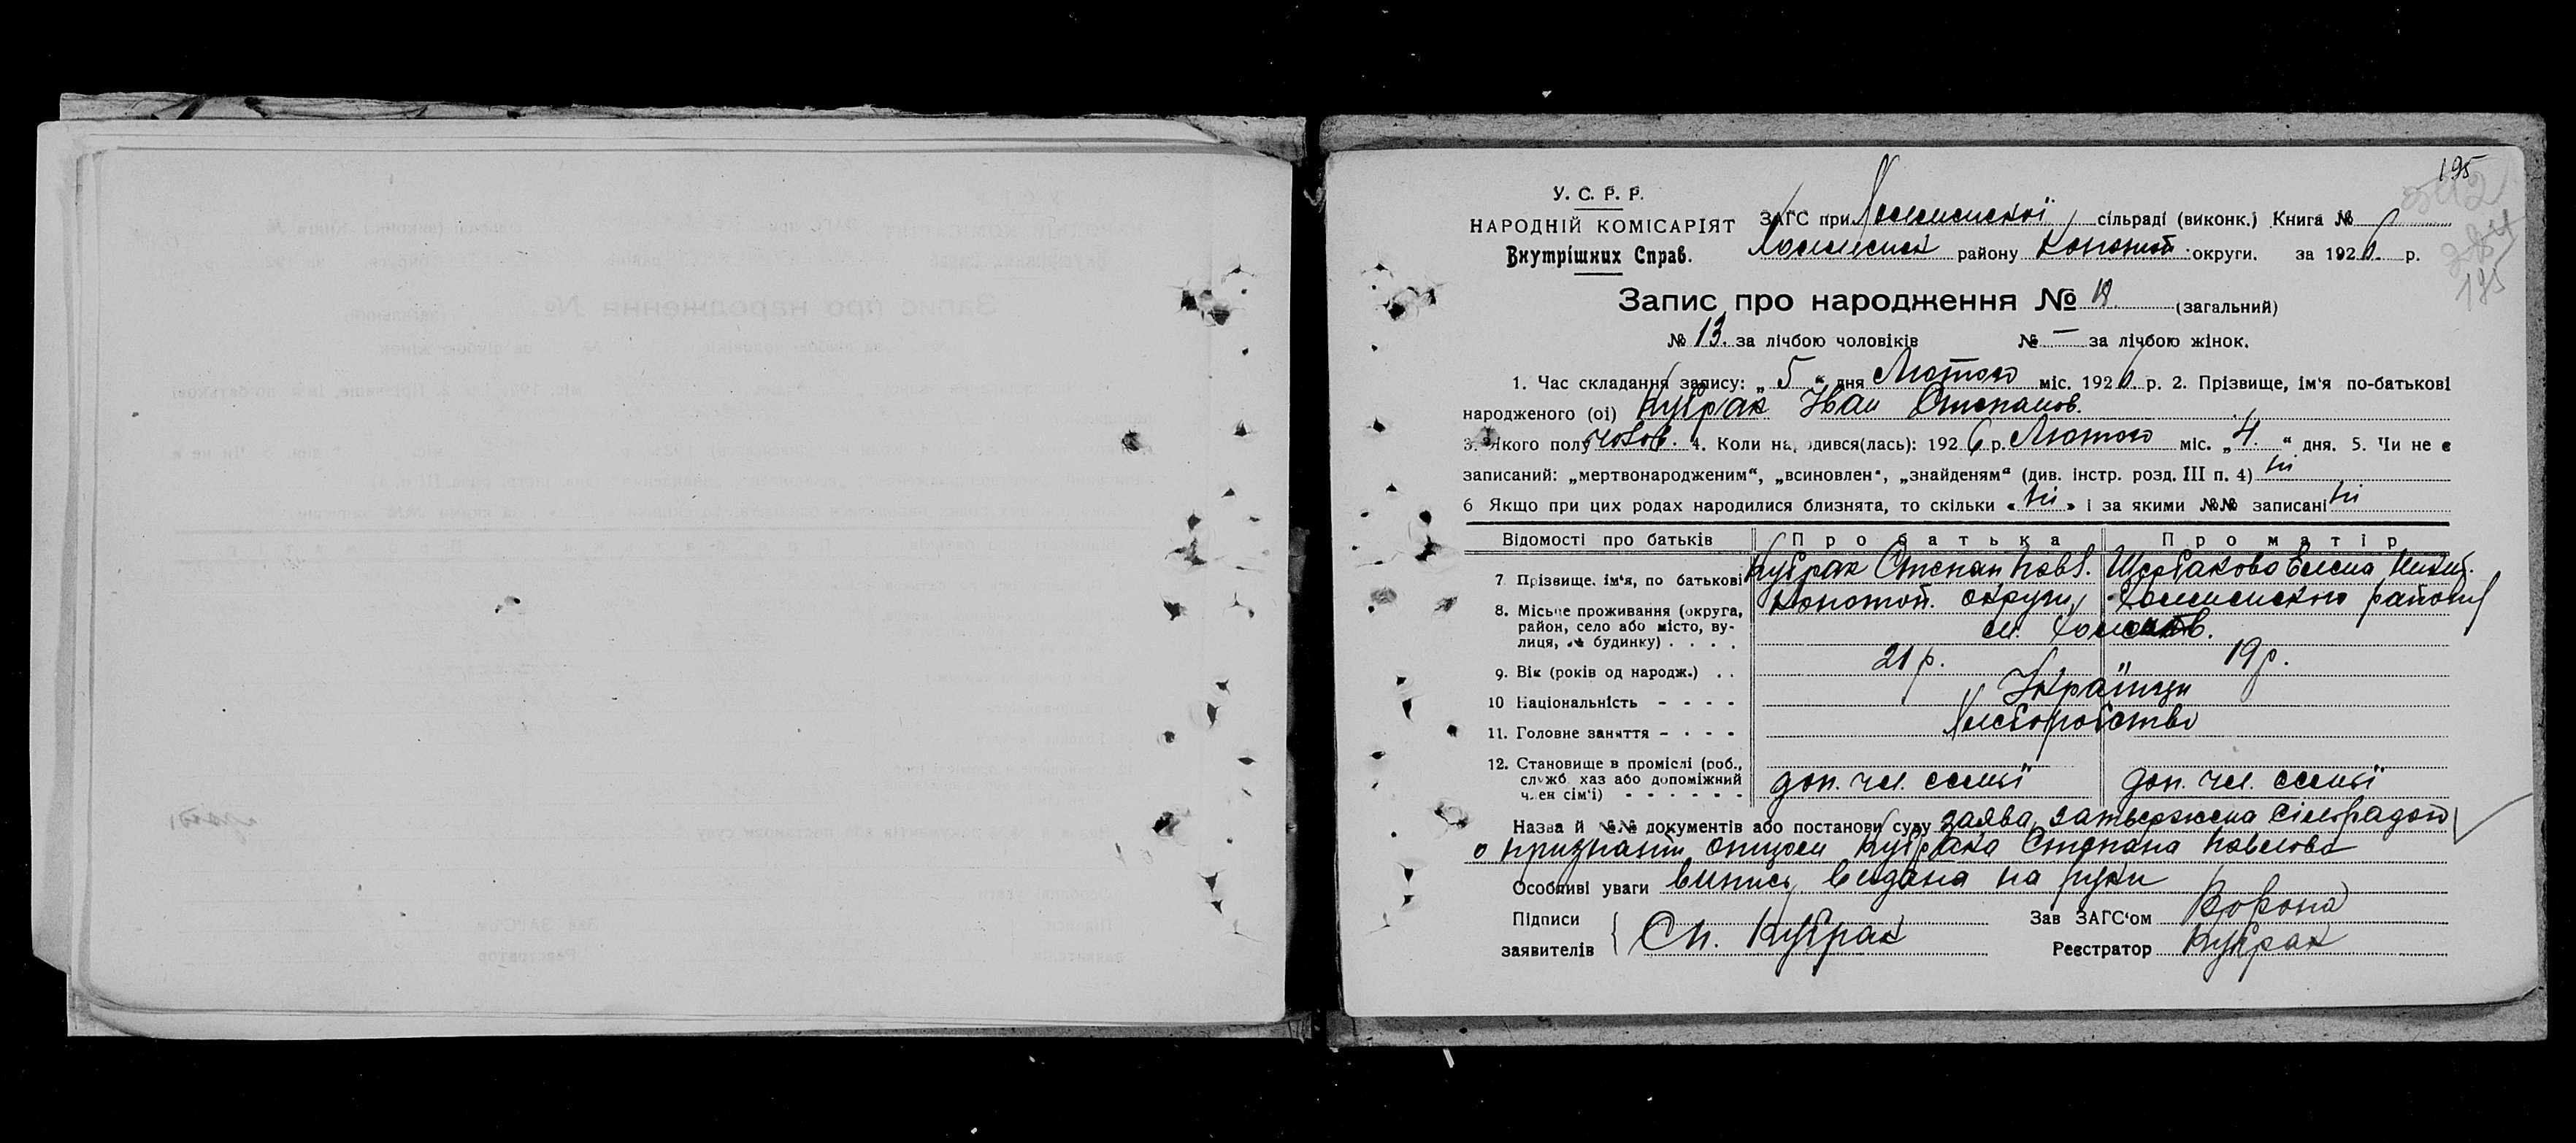 195
У. С. Р. Р.
НАРОДНІЙ КОМІСАРІЯТ
Внутрішних Справ.
ЗАГС при сільраді (виконк.) Книга №
району Конотоп округи. за 1926 р.
Запис про народження № 18. (загальний)
№ 13. за лічбою чоловіків № — за лічбою жінок.
1. Час складання запису: „ 5 “ дня Лютого міс. 1926. р. 2. Прізвище, ім'я по-батькові
народженого (ої) Кубрак Іван Степанов.
3. Якого полу чолов. 4. Коли народився(лась): 1926 р. Лютого міс. „ 4. “ дня. 5. Чи не є
записаний: „мертвонародженим“, „всиновлен“, „знайденям“ (див. інстр. розд. III п. 4) Ні
6 Якщо при цих родах народилися близнята, то скільки « Ні » і за якими №№ записані Ні
Відомості про батьків Про батька Про матір
7 Прізвище, ім'я, по батькові Кубрак Степан Павл. Щербакова Елена Никит.
8. Місьце проживання (округа, район, село або місто, вулиця, № будинку) . . . . Конотоп. округи, району
9. Вік (років од народж.) . . 21 р. 19 р.
10 Національність - - - - Українци
11. Головне заняття - - - - Хлеборобство
12. Становище в промислі (роб., служб. хаз або допоміжний член сім'ї) - - - - - - доп. чл. семьї доп. чл. семьї
Назва й №№ документів або постанови суду заява, затвержена сільрадою
о признанії отцом Кубрака Степана Павлова
Особливі уваги випись видана на руки
Підписи
заявителів Сп. Кубрак
Зав ЗАГС'ом Ворона
Реєстратор Кубрак